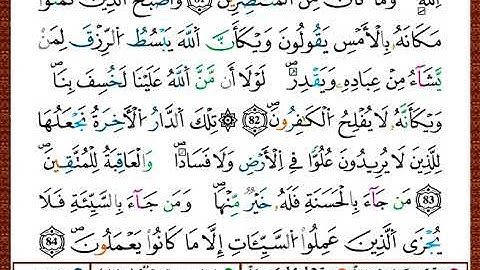 اللَّهِ وَمَا كَانَ مِنَ الْمُنتَصِرِينَ ۝٨١ وَأَصْبَحَ الَّذِينَ تَمَنَّوْا
مَكَانَهُ بِالْأَمْسِ يَقُولُونَ وَيْكَأَنَّ اللَّهَ يَبْسُطُ الرِّزْقَ لِمَن
يَشَآءُ مِنْ عِبَادِهِ وَيَقْدِرُ لَوْلَآ أَن مَّنَّ اللَّهُ عَلَيْنَا لَخُسِفَ بِنَا
وَيْكَأَنَّهُ لَا يُفْلِحُ الْكَٰفِرُونَ 82 ۞ تِلْكَ الدَّارُ الْأَخِرَةُ نَجْعَلُهَا
لِلَّذِينَ لَا يُرِيدُونَ عُلُوًّا فِي الْأَرْضِ وَلَا فَسَادًا وَالْعَاقِبَةُ لِلْمُتَّقِينَ
83 مَن جَآءَ بِالْحَسَنَةِ فَلَهُ خَيْرٌ مِّنْهَا وَمَن جَآءَ بِالسَّيِّئَةِ فَلَا
يُجْزَى الَّذِينَ عَمِلُوا السَّيِّـَٔاتِ إِلَّا مَا كَانُوا يَعْمَلُونَ 84